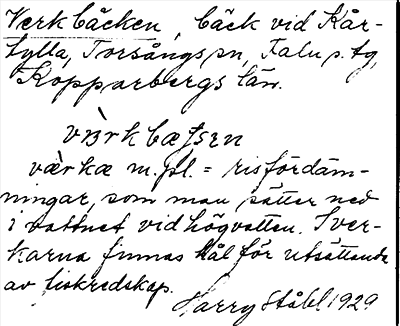 Verkbäcken, bäck vid Kår-
tylla, Torsångs sn, Falu s. tg,
Kopparbergs län.
værkbæʃsen
værkæ m.pl. = risfördäm-
ningar, som man sätter ned
i vattnet vid högvatten. I ver-
karna finnas hål för utsättande
av fiskredskap.
Harry Ståhl 1929